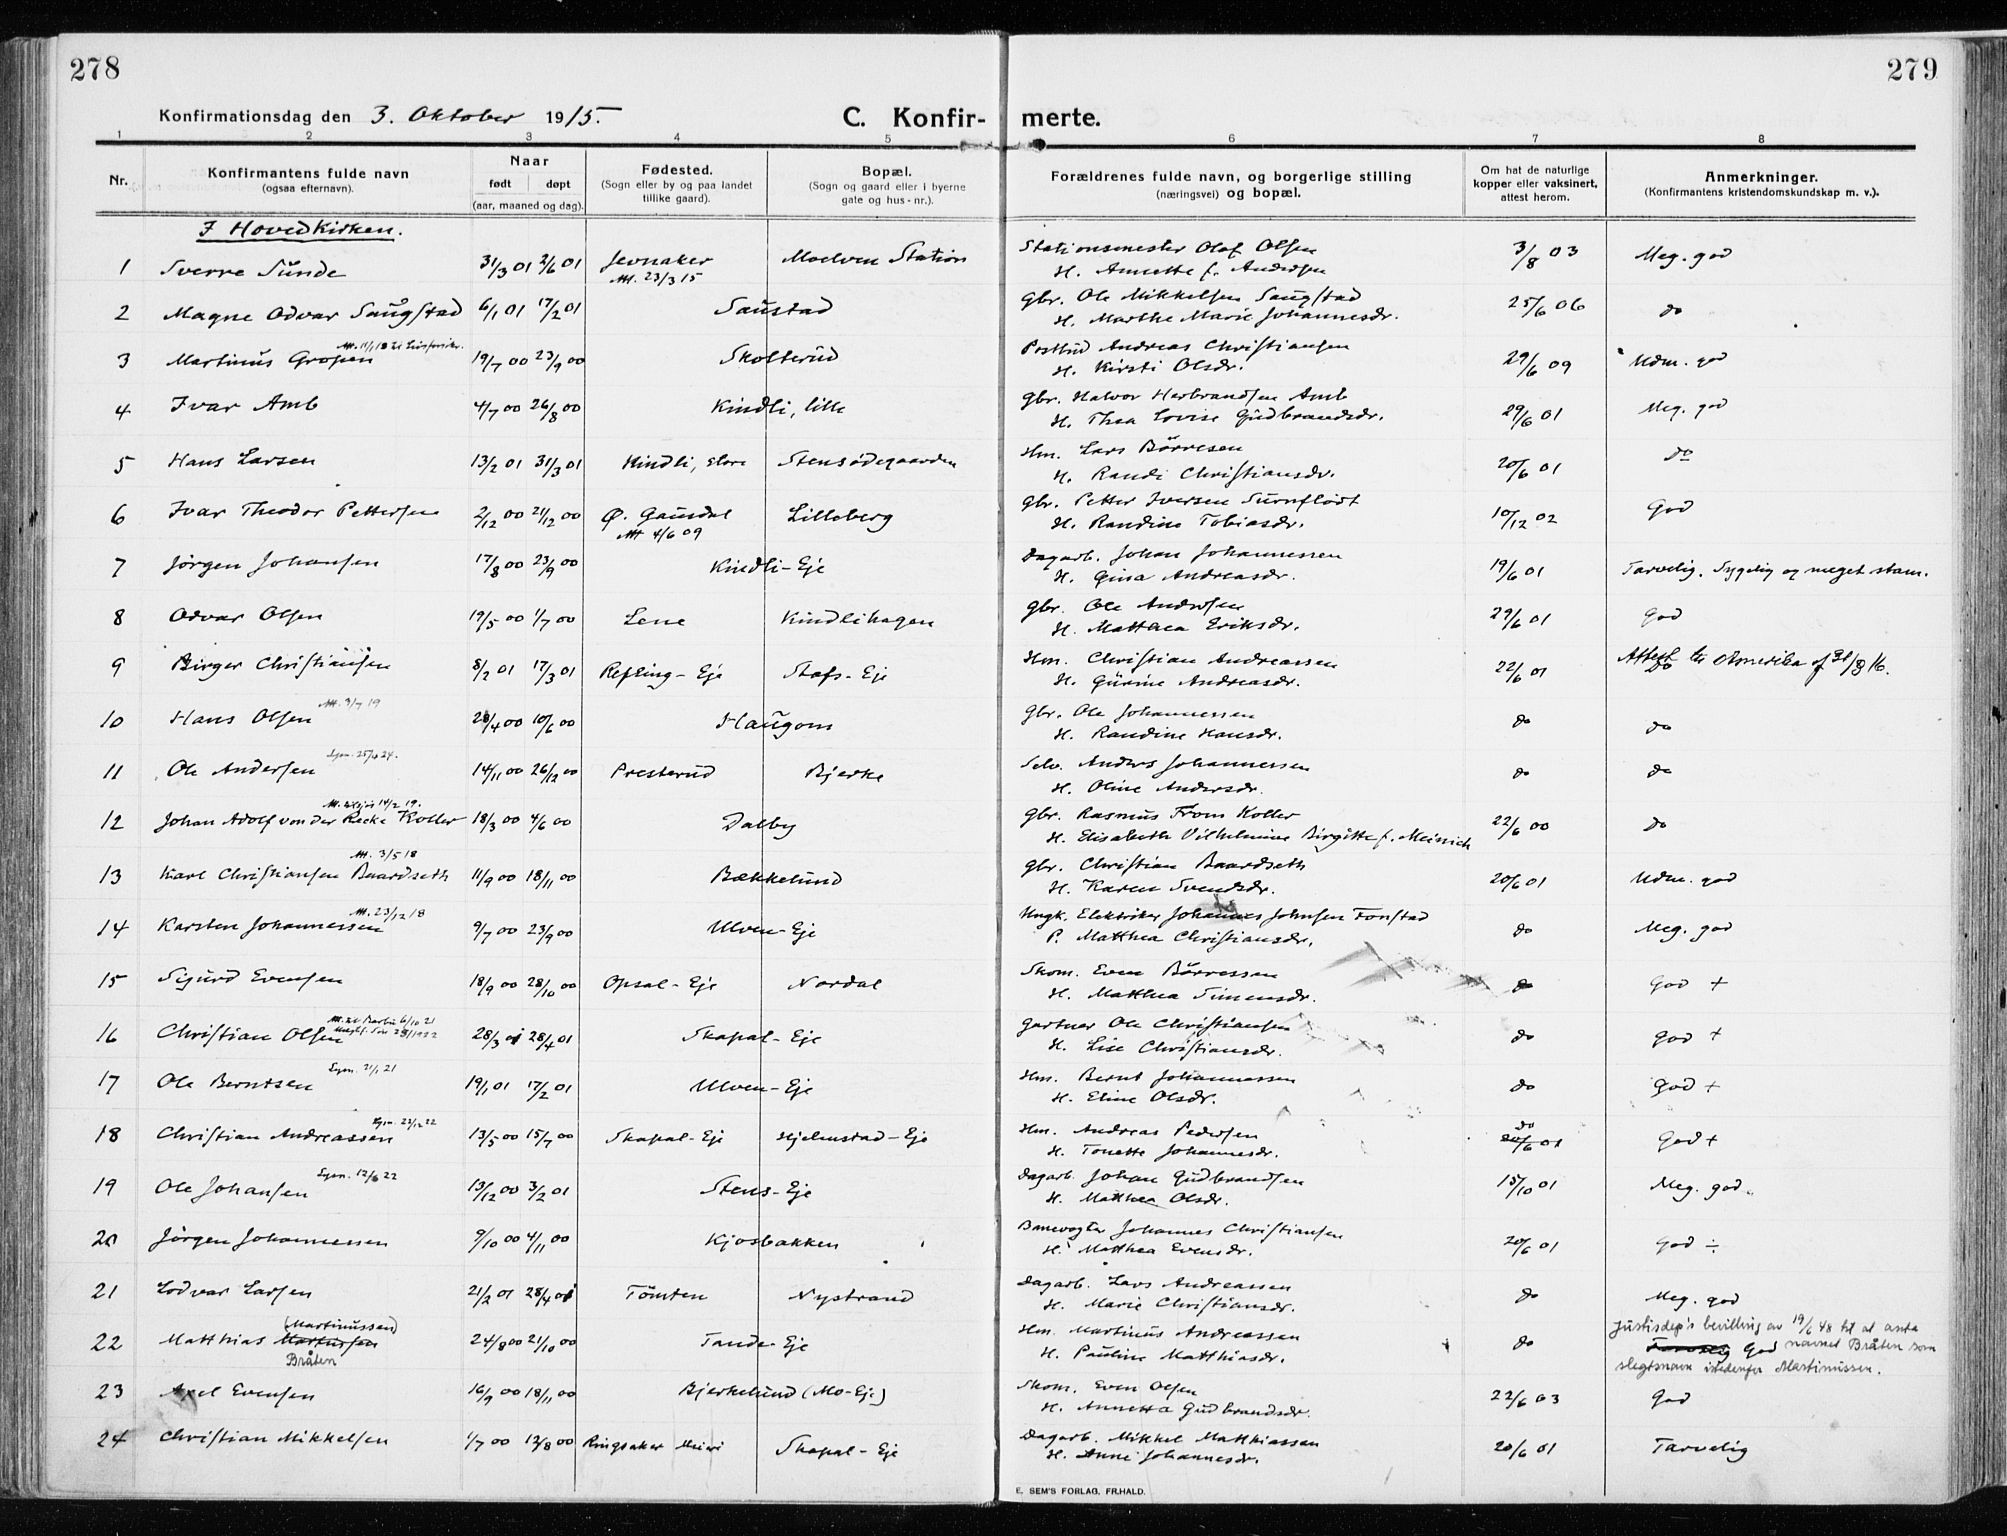 278
279
Konfirmationsdag den 3. Oktober 1915.
C. Konfir-merte.
1 2 3 4 5 6 7 8
Nr.
Konfirmantens fulde navn
(ogsaa efternavn).
Naar
født døpt
(aar, maaned og dag).
Fødested.
(Sogn eller by og paa landet
tillike gaard).
Bopæl.
(Sogn og gaard eller i byerne
gate og hus-nr.).
Forældrenes fulde navn, og borgerlige stilling
(næringsvei) og bopæl.
Om hat de naturlige
kopper eller vaksinert,
attest herom.
Anmerkninger.
(Konfirmantens kristendomskundskap m. v.).
I Hovedkirken.
1 Sverre Sunde 31/3 01 2/6 01 Jevnaker Moelven Station Stationsmester Olof Olsen 3/8 03 Meg. god
Att. 23/3 15 H. Annette f. Andersen
2 Magne Odvar Saugstad 6/1 01 17/2 01 Saustad Gbr. Ole Mikkelsen Saugstad 25/6 06 do
H. Marthe Marie Johannesdr.
3 Martinus Grosen 19/7 00 23/9 00 Skolterud Postbud Andreas Christiansen 29/6 09 Udm. god
H. Kirsti Olsdr.
4 Ivar Amb 4/7 00 26/8 00 Kindli, lille Gbr. Halvor Herbrandsen Amb 29/6 01 Meg. god
H. Thea Lovise Gudbrandsdr.
5 Hans Larsen 13/2 01 31/3 01 Kindli, store Stensødegaarden Hm. Lars Børresen 20/6 01 do
H. Randi Christiansdr.
6 Ivar Theodor Pettersen 2/12 00 21/12 00 Ø. Gausdal Lilleberg Gbr. Petter Iversen Surnflødt 10/12 02 God
Att 4/6 09 H. Randine Tobiasdr.
7 Jørgen Johansen 17/8 00 23/9 00 Kindli-Eje Dagarb. Johan Johannessen 19/6 01 Tarvelig. Sygelig og meget stam.
H. Gina Andreasdr.
8 Odvar Olsen 19/5 00 1/7 00 Lene Kindlihagen Gbr. Ole Andersen 29/6 01 God
H. Matthea Eriksdr.
9 Birger Christiansen 8/2 01 17/3 01 Refling-Eje Stafs-Eje Hm. Christian Andreassen 22/6 01 do
Attest til Amerika
H. Gurine Andreasdr.
Att. 3/7 19
10 Hans Olsen 28/4 00 10/6 00 Haugom Gbr. Ole Johannessen do do
H. Randine Hansdr.
11 Ole Andersen 14/11 00 26/12 00 Presterud Bjerke Selv. Anders Johannessen do do
H. Oline Andersdr.
12 Johan Adolf von der Recke Koller 18/3 00 4/6 00 Dalby Gbr. Rasmus From Koller 22/6 00 do
H. Elisabeth Vilhelmine Birgitte f. Meinich
Att. 3/5 18
13 Karl Christiansen Baardseth 11/9 00 18/11 00 Bækkelund Gbr. Christian Baardseth 20/6 01 Udm. god
H. Karen Svendsdr.
Att. 23/12 18
14 Karsten Johannessen 9/7 00 23/9 00 Ulven-Eje Ungk. Elektriker Johannes Johnsen Fonstad do Meg. god
P. Matthea Christiansdr.
15 Sigurd Evensen 18/9 00 28/10 00 Opsal-Eje Nordal Skom. Even Børressen do God +
H. Matthea Simensdr.
16 Christian Olsen 28/3 01 28/4 01 Skapal-Eje Gartner Ole Christiansen do God +
H. Lise Christiansdr.
17 Ole Berntsen 19/1 01 17/2 01 Ulven-Eje Hm. Bernt Johannessen do God +
H. Eline Olsdr.
18 Christian Andreassen 13/5 00 15/7 00 Skapal-Eje Hjelmstad-Eje Hm. Andreas Pedersen do 20/6 01 God +
H. Tonette Johannesdr.
19 Ole Johansen 13/12 00 3/2 01 Stens-Eje Dagarb. Johan Gudbrandsen 15/10 01 Meg. god
H. Matthea Olsdr.
20 Jørgen Johannessen 9/10 00 4/11 00 Kjosbakken Banevogter Johannes Christiansen 20/6 01 God ÷
H. Matthea Evensdr.
21 Lodvar Larsen 21/2 01 28/4 01 Tomten Nystrand Dagarb. Lars Andreassen do Meg. god
H. Marie Christiansdr.
22 Matthias Martinsen (Martinussen) Bråten 24/8 00 21/10 00 Tande-Eje Hm. Martinus Andreassen do Tarvelig God
H. Pauline Matthiasdr.
Justisdep's bevilling av 19/6 48 til at anta
navnet Bråten som
slegtsnavn istedenfor Martinussen.
23 Axel Evensen 16/9 00 18/11 00 Bjerkelund (Mo-Eje) Skom. Even Olsen 22/6 03 God
H. Annetta Gudbrandsdr.
24 Christian Mikkelsen 1/7 00 12/8 00 Ringsaker Meieri Skapal-Eje Dagarb. Mikkel Matthiassen 20/6 01 Tarvelig
H. Anne Johannesdr.
E. SEM'S FORLAG. FR.HALD.